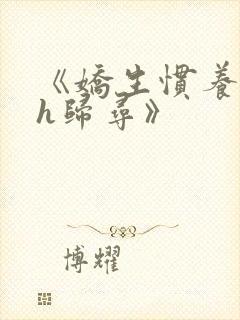 《嬌生慣養
h歸尋》
博耀